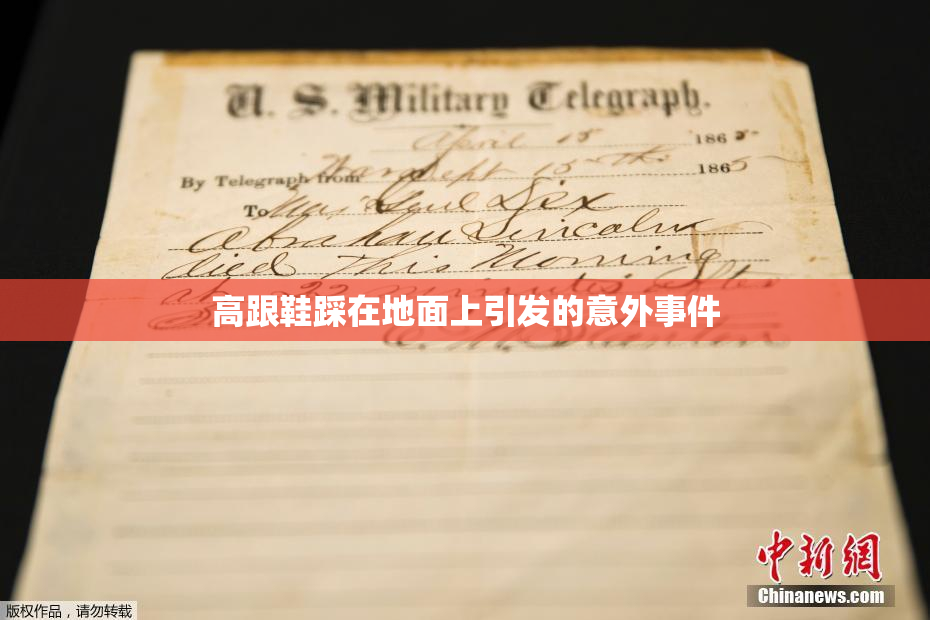 U. S. Military Telegraph.
April 15 1865
By Telegraph from War Dept 15th 1865
To Maj Genl Dix
Abraham Lincoln
died This Morning
at 22 minutes after
高跟鞋踩在地面上引发的意外事件
E. M. Stanton
中新网
Chinanews.com
版权作品,请勿转载